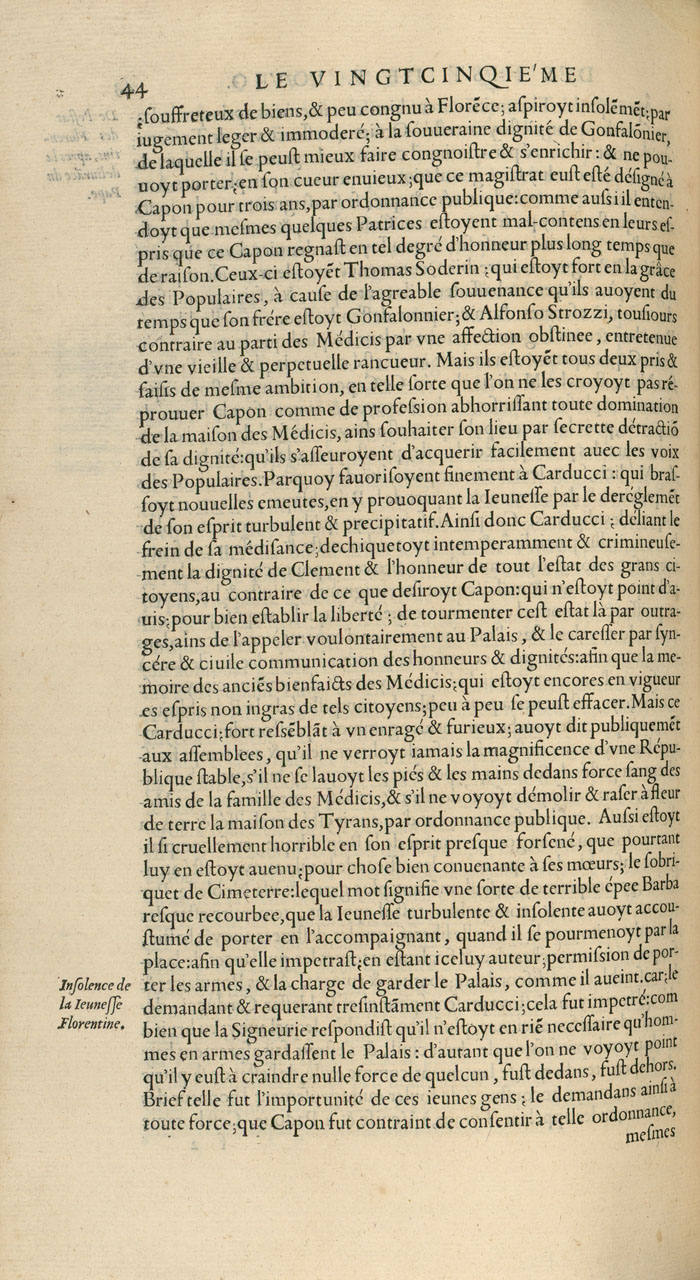 44
LE VINGTCINQIE'ME
;souffreteux de biens,& peu congnu à Florẽce; aspiroyt insolẽmẽt;par
iugement leger & immoderé; à la souueraine dignité de Gonfalõnier,
de laquelle il se peust mieux faire congnoistre & s'enrichir: & ne pou-
uoyt porter;en son cueur enuieux;que ce magistrat eust esté désigné à
Capon pour trois ans,par ordonnance publique:comme aussi il enten-
doyt que mesmes quelques Patrices estoyent mal-contens en leurs es-
pris que ce Capon regnast en tel degré d'honneur plus long temps que
de raison.Ceux-ci estoyẽt Thomas Soderin ;qui estoyt fort en la grâce
des Populaires, à cause de l'agreable souuenance qu'ils auoyent du
temps que son frére estoyt Gonfalonnier;& Alfonso Strozzi, tousiours
contraire au parti des Médicis par vne affection obstinee, entretenue
d'vne vieille & perpetuelle rancueur. Mais ils estoyẽt tous deux pris &
saisis de mesme ambition, en telle sorte que l'on ne les croyoyt pas ré-
prouuer Capon comme de profession abhorrissant toute domination
de la maison des Médicis, ains souhaiter son lieu par secrette détractiõ
de sa dignité:qu'ils s'asseuroyent d'acquerir facilement auec les voix
des Populaires.Parquoy fauorisoyent finement à Carducci : qui bras-
soyt nouuelles emeutes,en y prouoquant la Ieunesse par le dereglemẽt
de son esprit turbulent & precipitatif.Ainsi donc Carducci ; déliant le
frein de sa médisance;dechiquetoyt intemperamment & crimineuse-
ment la dignité de Clement & l'honneur de tout l'estat des grans ci-
toyens,au contraire de ce que desiroyt Capon:qui n'estoyt point d'a-
uis;pour bien establir la liberté ; de tourmenter cest estat là par outra-
ges,ains de l'appeler voulontairement au Palais, & le caresser par syn-
cére & ciuile communication des honneurs & dignités:afin que la me-
moire des anciẽs bienfaicts des Médicis;qui estoyt encores en vigueur
es espris non ingras de tels citoyens;peu à peu se peust effacer.Mais ce
Carducci;fort ressẽblãt à vn enragé & furieux; auoyt dit publiquemẽt
aux assemblees, qu'il ne verroyt iamais la magnificence d'vne Répu-
blique stable,s'il ne se lauoyt les piés & les mains dedans force sang des
amis de la famille des Médicis,& s'il ne voyoyt démolir & raser à fleur
de terre la maison des Tyrans,par ordonnance publique. Aussi estoyt
il si cruellement horrible en son esprit presque forsené, que pourtant
luy en estoyt auenu;pour chose bien conuenante à ses mœurs; le sobri-
quet de Cimeterre:lequel mot signifie vne sorte de terrible épee Barba
resque recourbee,que la Ieunesse turbulente & insolente auoyt accou-
stumé de porter en l'accompaignant, quand il se pourmenoyt par la
place:afin qu'elle impetrast;en estant iceluy auteur;permission de por-
ter les armes, & la charge de garder le Palais, comme il aueint.car;le
demandant & requerant tresinstãment Carducci;cela fut impetré:com
bien que la Signeurie respondist qu'il n'estoyt en riẽ necessaire qu'hom-
mes en armes gardassent le Palais : d'autant que l'on ne voyoyt point
qu'il y eust à craindre nulle force de quelcun, fust dedans, fust dehors.
Brief telle fut l'importunité de ces ieunes gens ; le demandans ainsi à
toute force;que Capon fut contraint de consentir à telle ordonnance,
mesmes
Insolence de
la Ieunesse
Florentine.